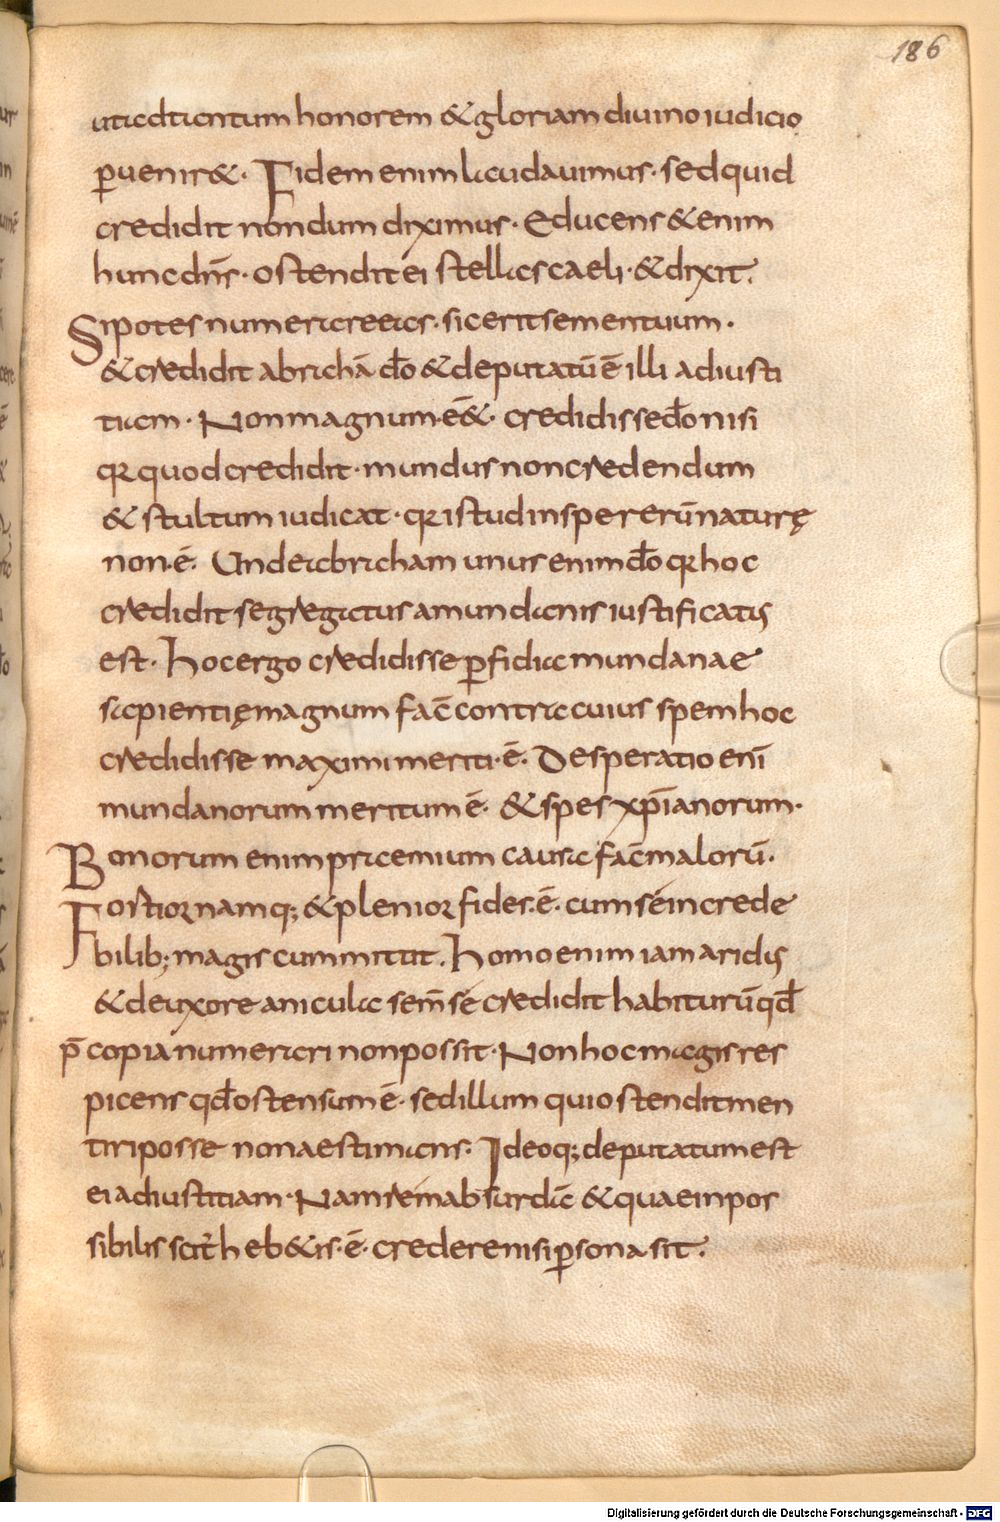 186
utadtantum honorem & gloriam diuino iudicio
ꝑuenir&. Fidem enim laudauimus. sed quid
credidit nondum diximus. Educens & enim
hunc dn̄s. ostendit ei stellas caeli. & dixit.
Si potes numerare eas. sic erit semen tuum.
& credidit abrahā dō & deputatū ē illi adiusti
tiam. Non magnum ē&. credidisse dō nisi
qꝛ quod credidit. mundus non credendum
& stultum iudicat. qꝛ istud in spe rerū naturę
non ē. Unde abraham unus enim dō qꝛ hoc
credidit segregatus a mundanis iustificatus
est. hoc ergo credidisse ꝑfidiae mundanae
sapientię magnum fac̄ contra cuius spem hoc
credidisse maximi meriti ē. Desperatio enī
mundanorum meritum ē. & spes xp̄ianorum.
Bonorum enim praemium causa fac̄ malorū.
Fortior namq; & plenior fides ē. cum se increde
bilib; magis cummitut. homo enim iam aridis
& de uxore anicula sem̄ se credidit habiturū qd̄
p̄ copia numerari non possit. Non hoc magis res
piciens qd̄ ostensum ē. sed illum qui ostendit men
tiri posse non aestimans. Ideoq; deputatum est
ei adiustitiam. Nam rem absurdā & quae inpos
sibilis scīt hebetis ē. credere nisi ꝑsona sit.
Digitalisierung gefördert durch die Deutsche Forschungsgemeinschaft - DFG